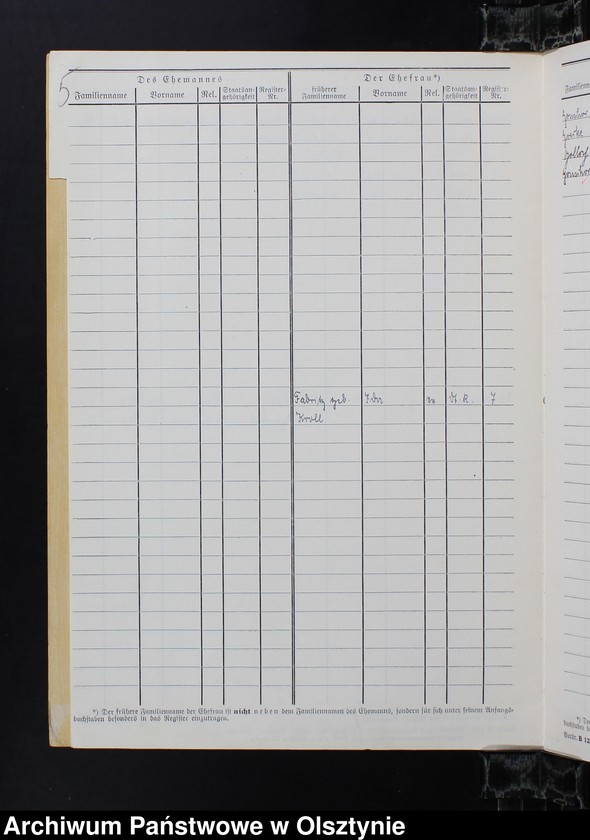 5
Des Ehemannes
Der Ehefrau*)
Familienname Vorname Rel. Staatsan-gehörigkeit Register-Nr. früherer Familienname Vorname Rel. Staatsan-gehörigkeit Register-Nr.
Fabritz geb. Ida D. R. 7
Kroll
*) Der frühere Familienname der Ehefrau ist nicht neben dem Familiennamen des Ehemanns, sondern für sich unter seinem Anfangs-
buchstaben besonders in das Register einzutragen.
Familienn
*) Der
buchstaben be
Archiwum Państwowe w Olsztynie